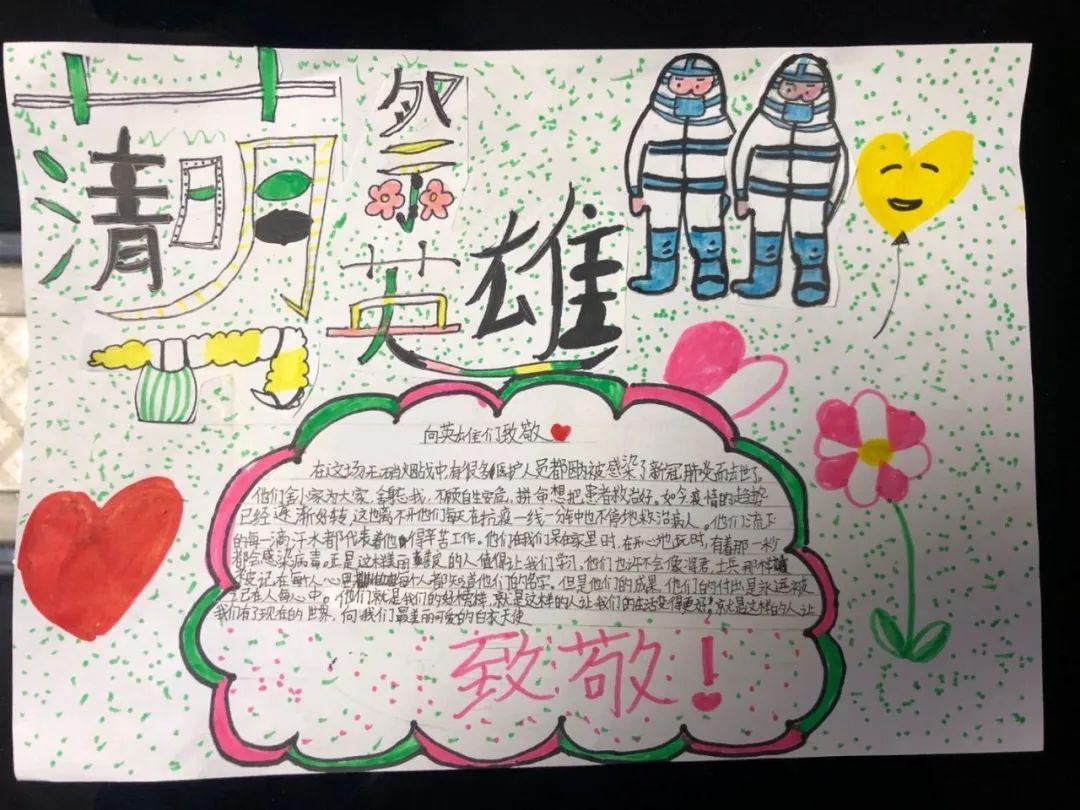 清明节
祭英雄
向英雄们致敬
在这场无硝烟战中有很多医护人员都因被感染了新冠肺炎而去世了。
他们舍小家为大家,舍 我,不顾自生安危,拼命想把患者救治好,如今疫情的趋势
已经逐渐好转,这也离不开他们每天在抗疫一线一分钟也不停地救治病人。他们流下
的每一滴汗水都代表着他们得辛苦工作。他们在我们呆在家里时,在开心地玩时,有着那一秒
都会感染病毒。正是这样美丽善良的人值得让我们学习,他们也许不会像将君,士兵那样
被记在每人心里 每个人都知道他们的名字。但是他们的成果,他们的付出是永远被
记在人每心中。他们就是我们的好榜样,就是这样的人让我们的生活变得更好!就是这样的人让
我们有了现在的世界,向我们最美丽可爱的白衣天使
致敬!